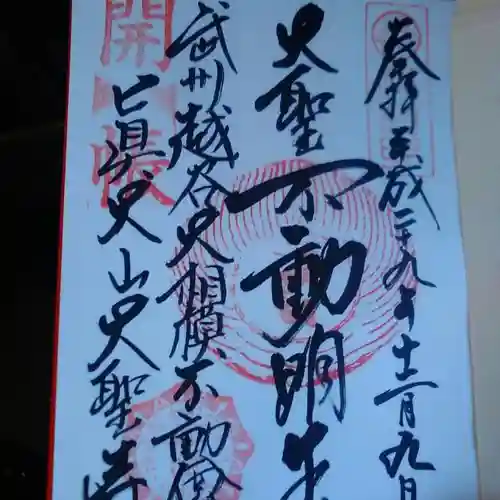 奉拝 平成二十九年十二月九日
大聖不動明王
武州越谷大相模不動尊
真大山大聖寺
開帳